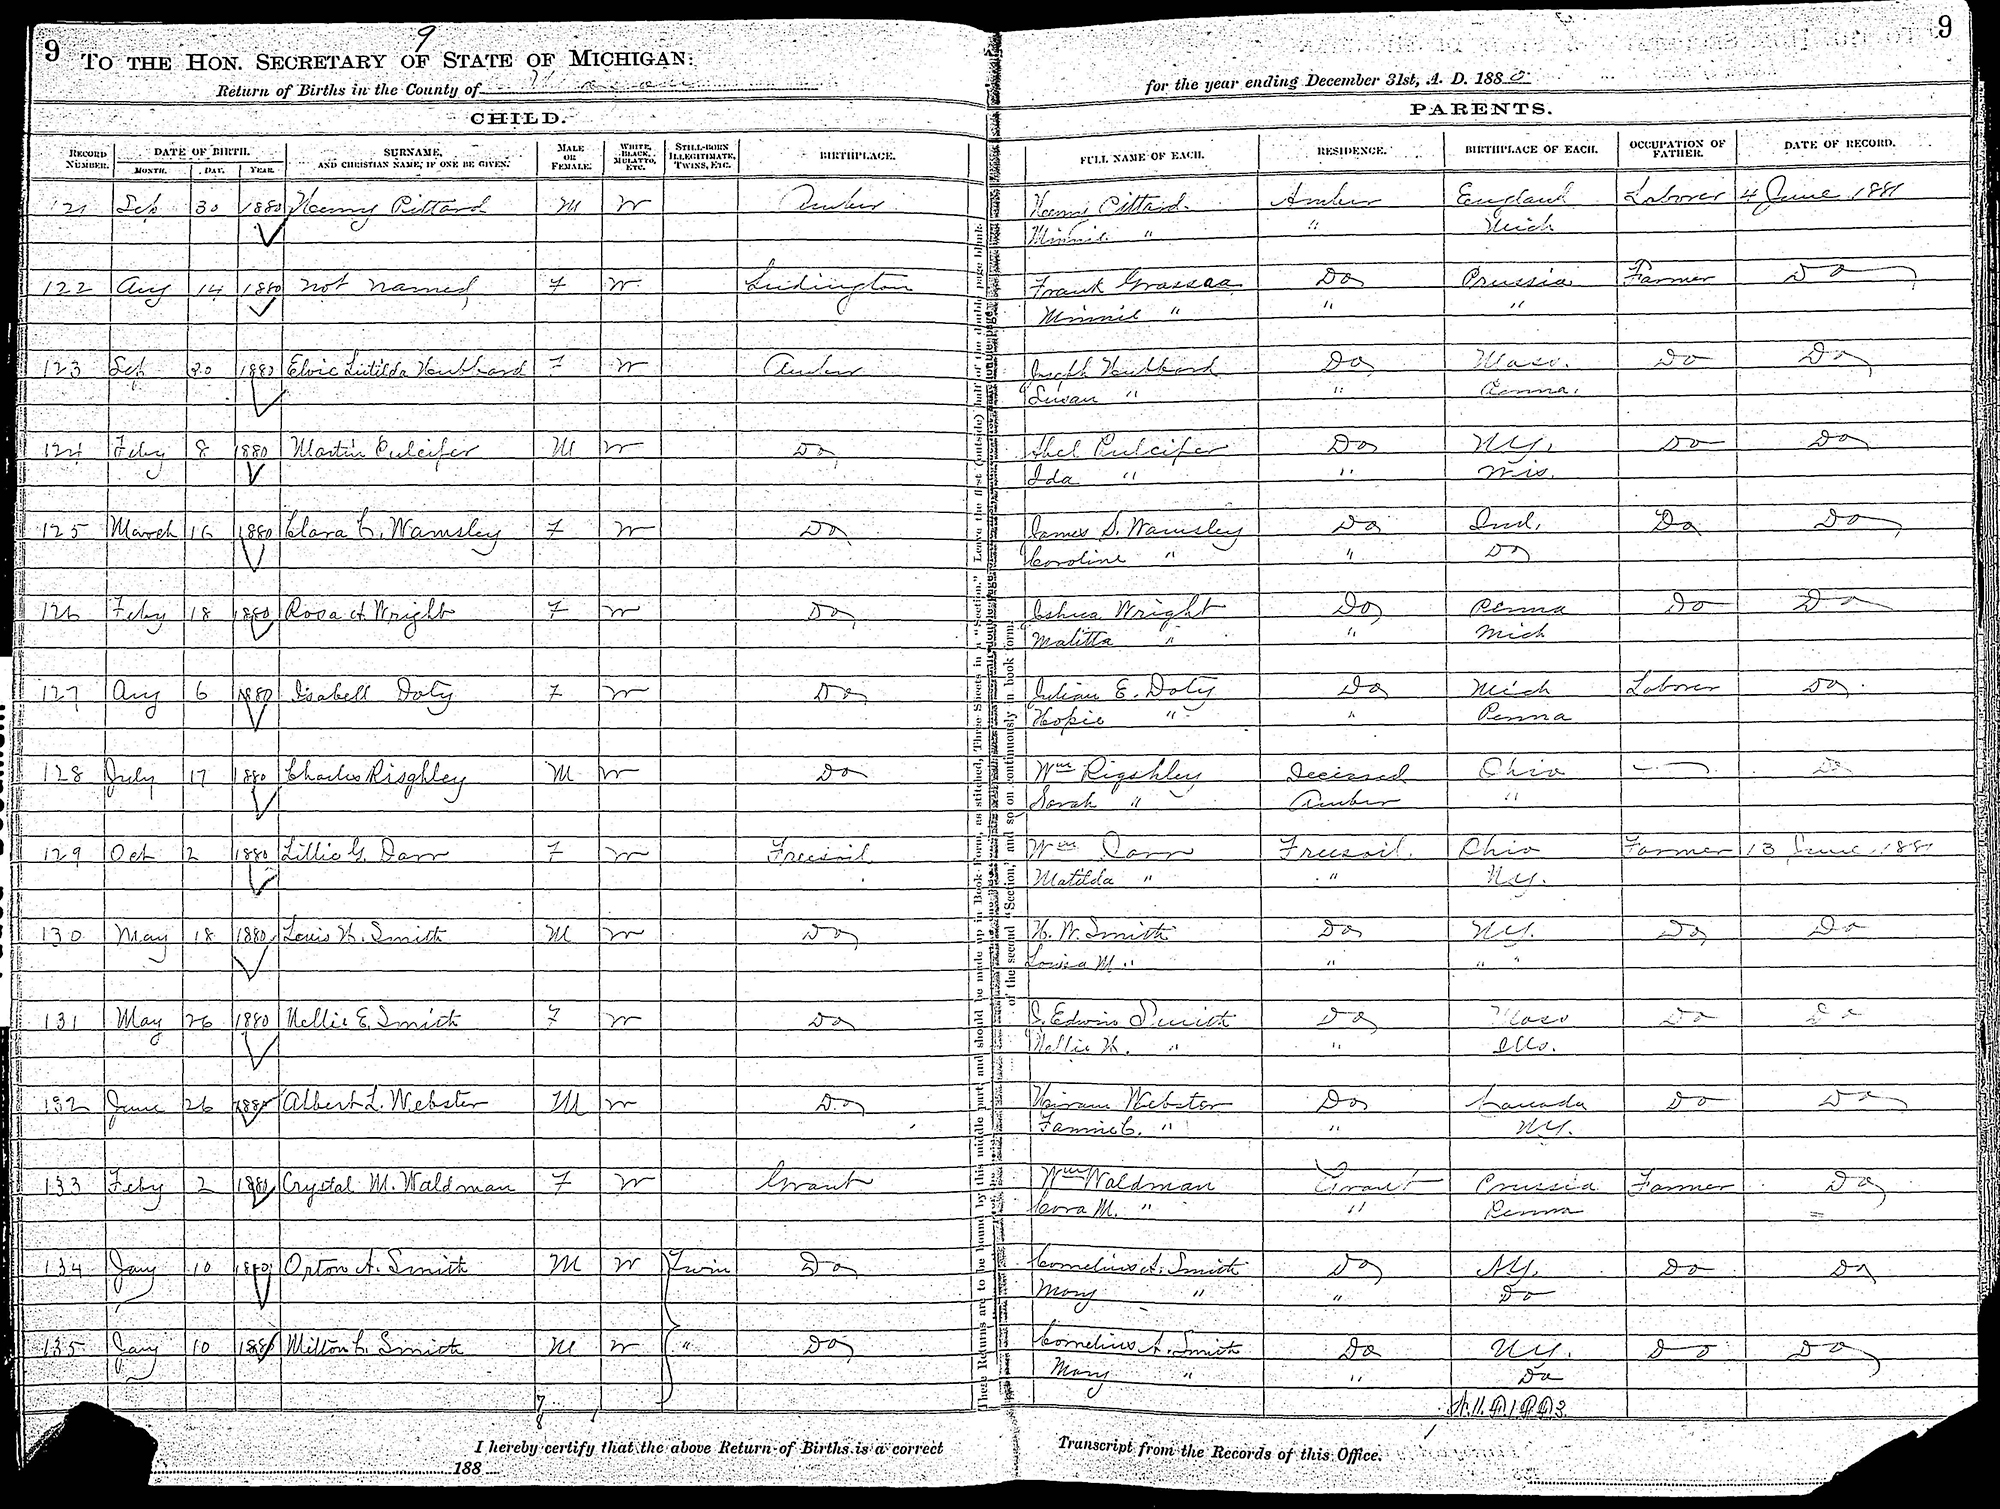 9
9
To the Hon. Secretary of State of Michigan:
Return of Births in the County of
for the year ending December 31st, A. D. 1880
9
CHILD.
PARENTS.
Record Number.
DATE OF BIRTH.
Month. Day. Year.
SURNAME, AND CHRISTIAN NAME, IF ONE BE GIVEN.
Male or Female.
White, Black, Mulatto, Etc.
Still-Born Illegitimate, Twins, Etc.
BIRTHPLACE.
FULL NAME OF EACH.
RESIDENCE.
BIRTHPLACE OF EACH.
OCCUPATION OF FATHER.
DATE OF RECORD.
121 Sep 30 1880 Henry Pittard M W Amber Henry Pittard Amber England Laborer 4 June 1881
Minnie " " Mich
122 Aug 14 1880 Not Named F W Ludington Frank Do Prussia Farmer Do
Minnie " " "
123 Sep 1880 Hubbard F W Amber Joseph Hubbard Do Mass. Do Do
Susan " " Penna.
124 Feby 8 1880 Martin Pulcifer M W Do Abel Pulcifer Do NY. Do Do
Ida " " Wis.
125 March 16 1880 Clara C. Wamsley F W Do James S. Wamsley Do Ind. Do Do
Caroline " " Do
126 Feby 18 1880 Rosa A Wright F W Do Joshua Wright Do Penna Do Do
Malitta " " Mich
127 Aug 6 1880 Isabell Doty F W Do Julian E. Doty Do Mich Laborer Do
Hopie " " Penna
128 July 17 1880 Charles Risghley M W Do Wm Rigshley Decissed Ohio — Do
Sarah " Amber "
129 Oct 2 1880 Lillie G. Darr F W Freesoil Wm Darr Freesoil. Ohio Farmer 13 June 1881
Matilda " " NY.
130 May 18 1880 Louis H. Smith M W Do H. W. Smith Do NY. Do Do
Louisa M. " " " "
131 May 26 1880 Nellie E. Smith F W Do S. Edwin Smith Do Mass Do Do
Nellie H. " " Ills.
132 June 26 1880 Albert L. Webster M W Do Hiram Webster Do Canada Do Do
Fannie C. " " NY.
133 Feby 2 1880 Crystal M. Waldman F W Grant Wm Waldman Grant Prussia Farmer Do
Cora M. " " Penna =
134 Jany 10 1880 Orton A. Smith M W Twin Do Cornelius A. Smith Do NY. Do Do
Mary " " Do
135 Jany 10 1880 Milton C. Smith M W " Do Cornelius A. Smith Do NY. Do Do
Mary " " Do
7
8
These Returns are to be bound by this middle part, and should be made up in Book Form, as stitched, Three Sheets in a "Section." Leave the first (outside) half of the double page blank.
of the second "Section," and so on continuously in book form.
I hereby certify that the above Return of Births is a correct Transcript from the Records of this Office.
188